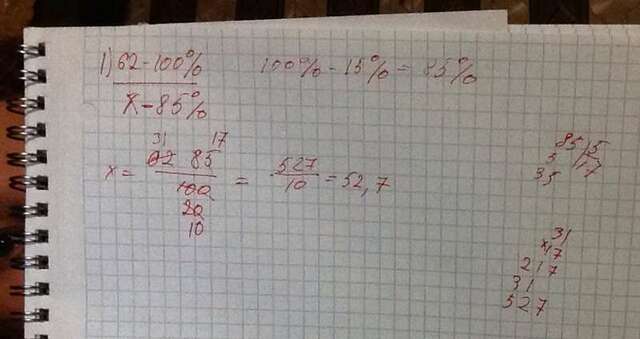 1) 62 - 100% 100% - 15% = 85%
x - 85%
31 17
x = 62 85 / 100 = 527 / 10 = 52,7
20
10
85 | 5
5 17
35
31
x17
217
31
527